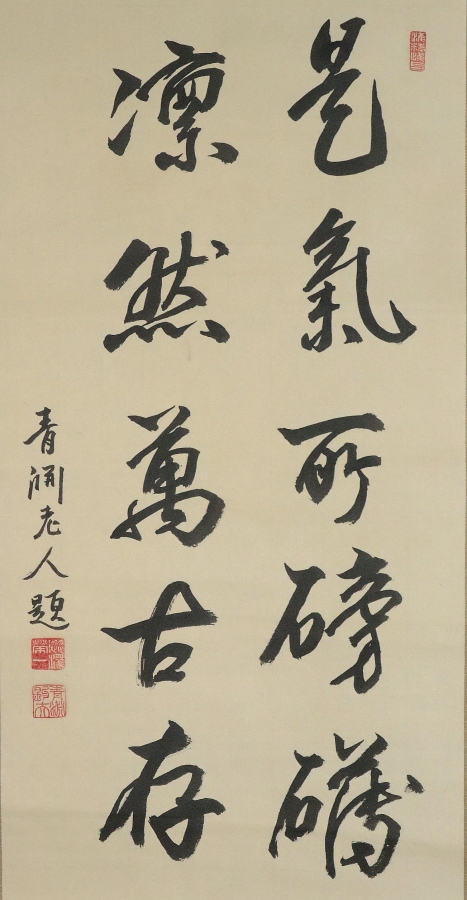 是氣所磅礴
凛然萬古存
青淵老人題